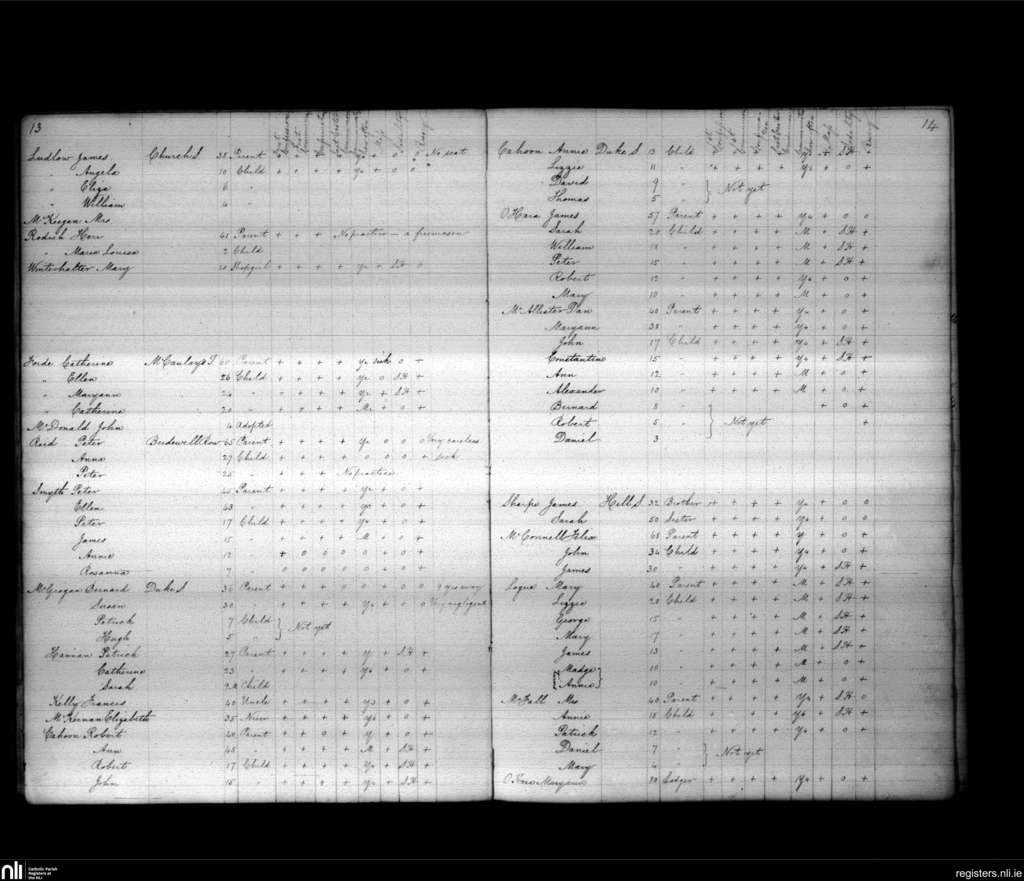 13
Ludlow James Church S 38 Parent + + o o No seat
" Angela 10 Child + o + + Ya + o o
" Eliza 6
" William 4
McKeegan Mrs
Rodich Herr 41 Parent + + + No practice — a freemason
" Maria Louisa 2 Child
Winterhalter Mary 20 Shopgirl + + + + Ya + SH +
Forde Catherine McCaulay's T 60 Parent + + + + Ya sick o +
" Ellen 26 Child + + + + Ya o SH +
" Maryann 24 " + + + + Ya + SH +
" Catherine 20 " + + + + M + o +
McDonald John 4 Adopted
Reid Peter Bredewell Row 65 Parent + + + + Ya o o o Very careless
Anne 27 Child + + + + o o o o + sick
Peter 25 " + + + No practice
Smyth Peter 45 Parent + + + + Ya + o +
Ellen 43 " + + + + Ya + o +
Peter 17 Child + + + + Ya + o +
James 15 " + + + + M + o +
Annie 12 " + o o o o + o +
Rosanna 7 " o o o o o o o +
McGrogan Bernard Duke S 36 Parent + + + + o o o o
Susan 30 " + + + + Ya + o o Very negligent
Patrick 7 Child } Not yet
Hugh 5 "
Hannan Patrick 27 Parent + + + + Y + SH +
Catherine 23 " + + + + Ya + o +
Sarah 9 M Child
Kelly Frances 40 Uncle + + + + Ya + o +
McKeenan Elizabeth 35 Niece + + + + Ya + o +
Cahoon Robert 40 Parent + + o + Y + o +
Ann 45 " + + + + M + SH +
Robert 17 Child + + + + Ya + SH +
John 15 " + + + + Ya + SH +
14
Cahoon Annie Duke S 13 Child + + + + Ya + SH +
Lizzie 11 " + + + + Ya + o +
David 9 " } Not yet
Thomas 5 "
O'Hara James 57 Parent + + + + Ya + o o
Sarah 20 Child + + + + M + SH +
William 18 " + + + + M + SH +
Peter 15 " + + + + M + SH +
Robert 12 " + + + + Ya + o +
Mary 10 " + + + + M + o +
McAllister Dan 40 Parent + + + + Ya + o +
Maryann 38 " + + + + Ya + o +
John 17 Child + + + + Ya + SH +
Constantine 15 " + + + + Ya + SH +
Ann 12 " + + + + M + o +
Alexander 10 " + + + + M + o +
Bernard 8 " + o +
Robert 5 " } Not yet +
Daniel 3
Sharpe James Hill S 32 Brother + + + + Ya + o o
Sarah 50 Sister + + + + Ya + o +
McConnell Felix 68 Parent + + + + Y + o +
John 34 Child + + + + Ya + o +
James 30 " + + + + Ya + SH +
Logue Mary 40 Parent + + + + M + SH +
Lizzie 20 Child + + + + M + SH +
George 15 " + + + + M + SH +
Mary 17 " + + + + M + SH +
James 13 " + + + + M + SH +
Madge 10 " + + + + M + o +
Annie 10 " + + + + M + o +
McFall Mrs 40 Parent + + + + Ya + SH o
Annie 15 Child + + + + Ya + SH +
Patrick 12 " + + + + Ya + o +
Daniel 7 " } Not yet
Mary 4 "
Maryann 70 Lodger + + + + Ya + o +
nli Catholic Parish Registers at the NLI
registers.nli.ie